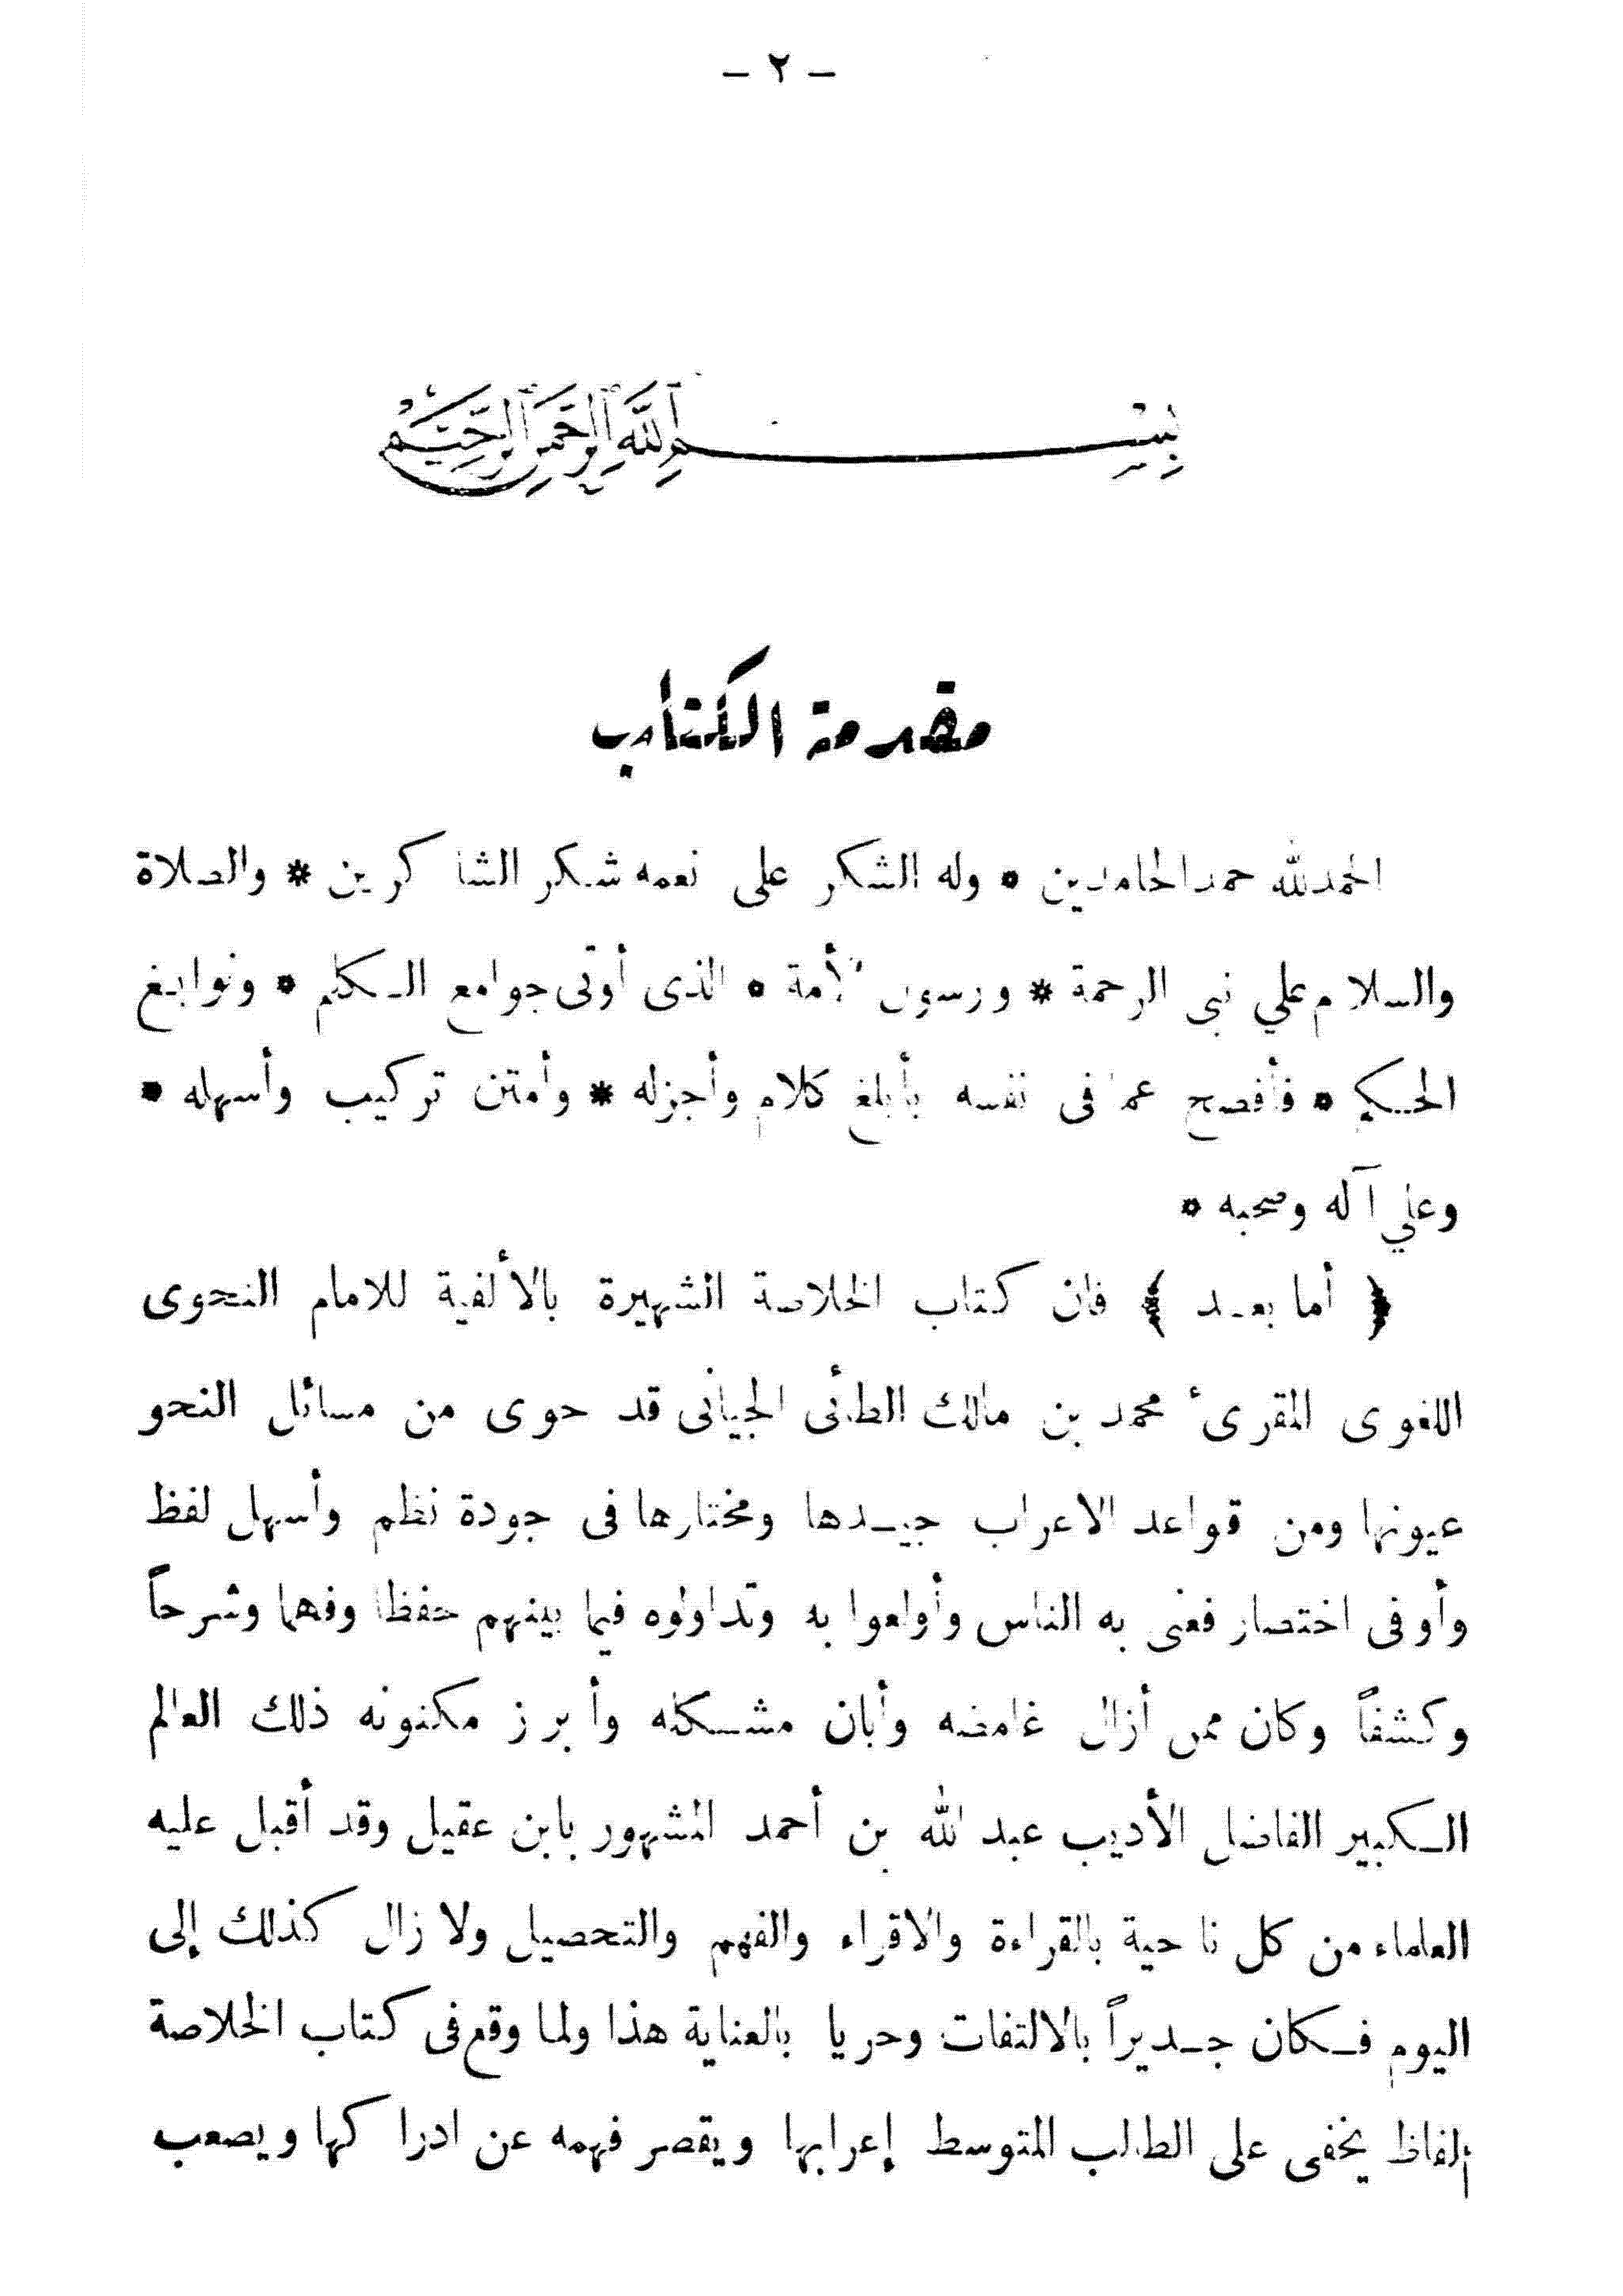 — ٢ —
بسم الله الرحمن الرحيم
مقدمة الكتاب
الحمد لله حمد الحامدين * وله الشكر على نعمه شكر الشاكرين * والصلاة
والسلام علي نبي الرحمة * ورسول الأمة * الذى أوتى جوامع الكلم * ونوابغ
الحكم * فأفصح عما فى نفسه بأبلغ كلام وأجزله * وأمتن تركيب وأسهله *
وعلي آله وصحبه *
﴿ أما بعد ﴾ فان كتاب الخلاصة الشهيرة بالألفية للامام النحوى
اللغوى المقرىء محمد بن مالك الطائى الجيانى قد حوى من مسائل النحو
عيونها ومن قواعد الاعراب جيدها ومختارها فى جودة نظم وأسهل لفظ
وأوفى اختصار فعنى به الناس وأولعوا به وتداولوه فيما بينهم حفظا وفهما وشرحاً
وكشفاً وكان ممن أزال غامضه وأبان مشكله وأبرز مكنونه ذلك العالم
الكبير الفاضل الأديب عبد الله بن أحمد المشهور بابن عقيل وقد أقبل عليه
العلماء من كل ناحية بالقراءة والاقراء والفهم والتحصيل ولا زال كذلك إلى
اليوم فكان جديراً بالالتفات وحريا بالعناية هذا ولما وقع فى كتاب الخلاصة
ألفاظ يخفى على الطالب المتوسط إعرابها ويقصر فهمه عن ادراكها ويصعب